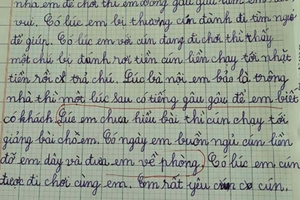 nhà em để chơi thì em đóng gâu gâu
vui. Có lúc em bị thương cún đành đi tìm người
để giúp. Có lúc em với cún đang đi chơi thì thấy
một chú bị đánh rơi tiền cún liền chạy tới nhặt
tiền rồi trả chú. Lúc bà nội em bảo là trông
nhà thì một lúc sau có tiếng gâu gâu để em biết
có khách. Lúc em chưa hiểu bài thì cún chạy tới
giảng bài cho em. Có ngày em buồn ngủ cún liền
đỡ em dậy và đưa em về phòng. Có lúc em cún
được đi chơi cùng em. Em rất yêu cún